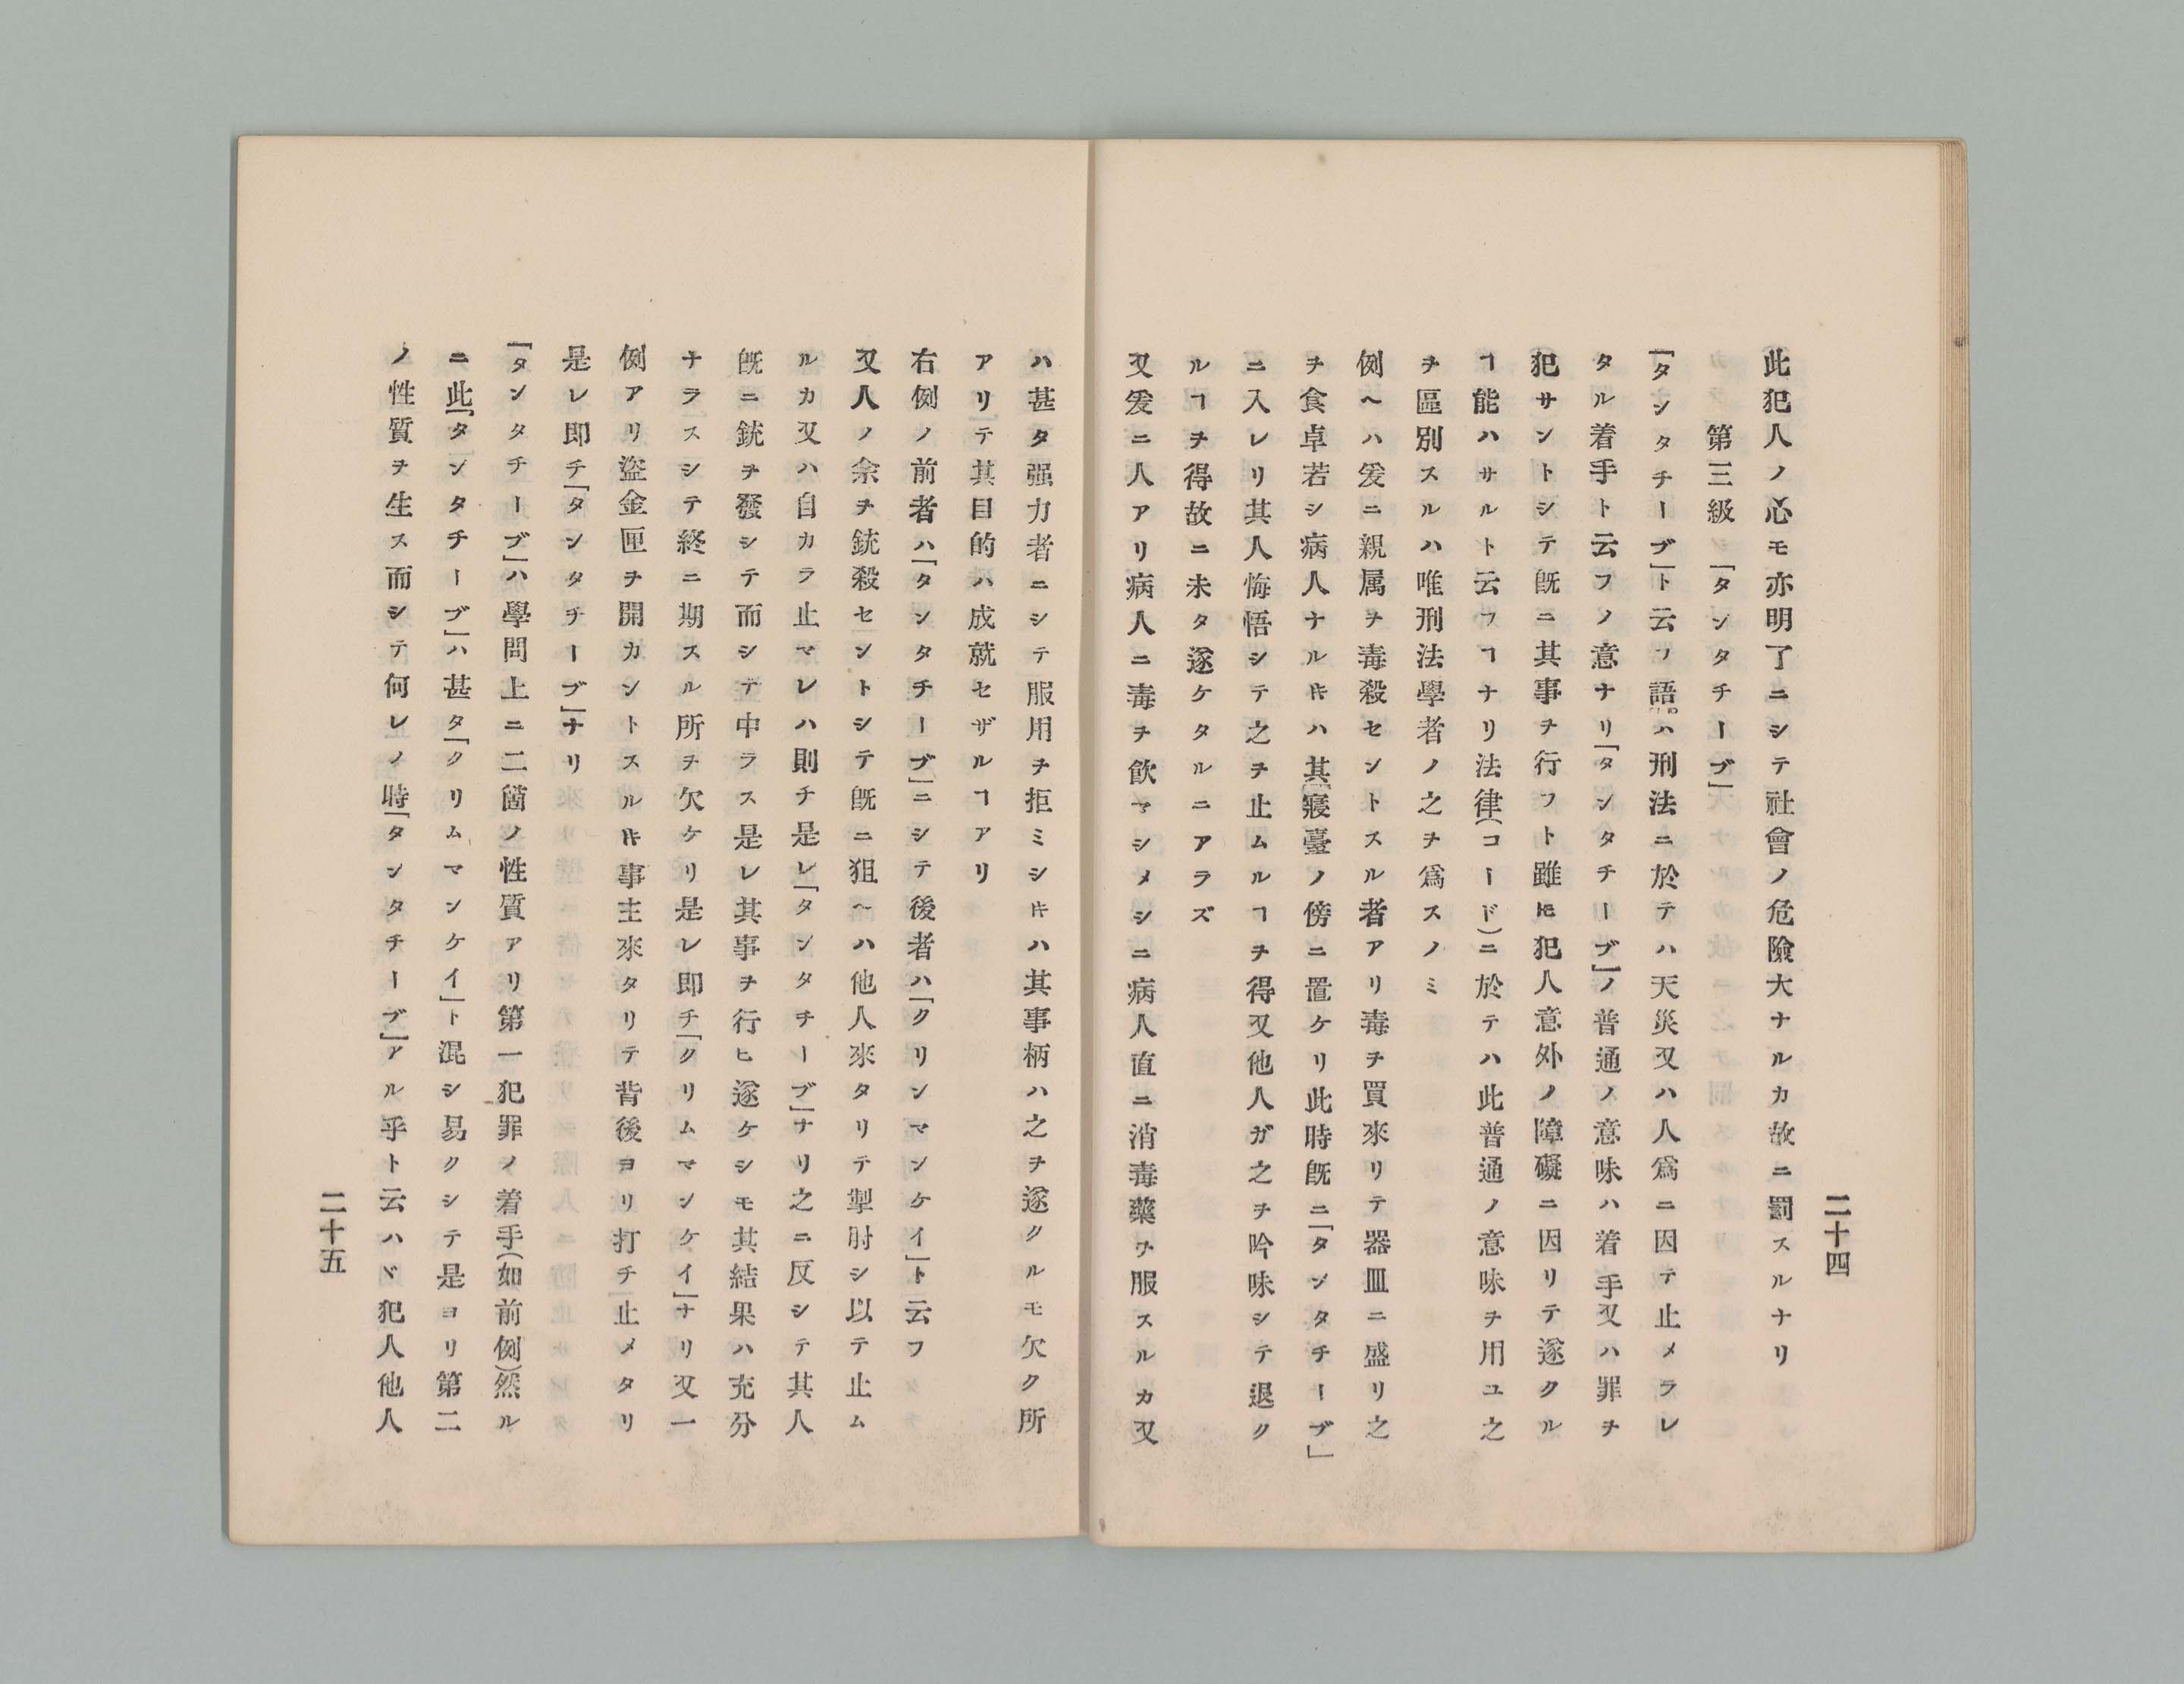 二十四
此犯人ノ心モ亦明了ニシテ社會ノ危險大ナルカ故ニ罰スルナリ
第三級「タンタチーブ」
「タンタチーブ」ト云フ語ハ刑法ニ於テハ天災又ハ人爲ニ因テ止メラレ
タル着手ト云フノ意ナリ「タンタチーブ」ノ普通ノ意味ハ着手又ハ罪ヲ
犯サントシテ旣ニ其事ヲ行フト雖𪜈犯人意外ノ障礙ニ因リテ遂クル
ヿ能ハサルト云フヿナリ法律(コード)ニ於テハ此普通ノ意味ヲ用ユ之
ヲ區別スルハ唯刑法學者ノ之ヲ爲スノミ
例ヘハ爰ニ親属ヲ毒殺セントスル者アリ毒ヲ買來リテ器皿ニ盛リ之
ヲ食卓若シ病人ナルキハ其寢臺ノ傍ニ置ケリ此時旣ニ「タンタチーブ」
ニ入レリ其人悔悟シテ之ヲ止ムルヿヲ得又他人ガ之ヲ吟味シテ退ク
ルヿヲ得故ニ未タ遂ケタルニアラズ
又爰ニ人アリ病人ニ毒ヲ飮マシメシニ病人直ニ消毒藥ヲ服スルカ又
ハ甚タ强力者ニシテ服用ヲ拒ミシキハ其事柄ハ之ヲ遂クルモ欠ク所
アリテ其目的ハ成就セザルヿアリ
右例ノ前者ハ「タンタチーブ」ニシテ後者ハ「クリンマンケイ」ト云フ
又人ノ余ヲ銃殺セントシテ旣ニ狙ヘハ他人來タリテ掣肘シ以テ止ム
ルカ又ハ自カラ止マレハ則チ是レ「タンタチーブ」ナリ之ニ反シテ其人
旣ニ銃ヲ發シテ而シテ中ラス是レ其事ヲ行ヒ遂ケシモ其結果ハ充分
ナラスシテ終ニ期スル所ヲ欠ケリ是レ即チ「クリムマンケイ」ナリ又一
例アリ盜金匣ヲ開カントスルキ事主來タリテ背後ヨリ打チ止メタリ
是レ即チ「タンタチーブ」ナリ
「タンタチーブ」ハ學問上ニ二箇ノ性質アリ第一犯罪ノ着手(如前例)然ル
ニ此「タンタチーブ」ハ甚タ「クリムマンケイ」ト混シ易クシテ是ヨリ第二
ノ性質ヲ生ス而シテ何レノ時「タンタチーブ」アル乎ト云ハヾ犯人他人
二十五